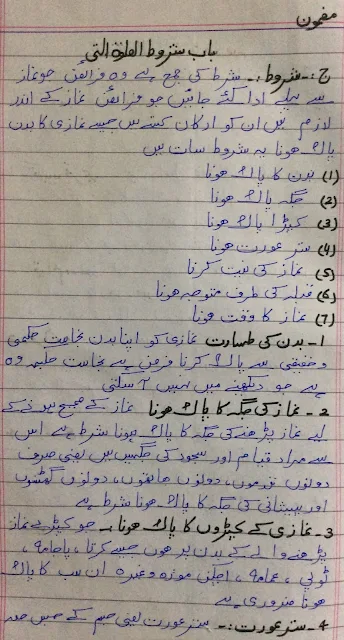 مضمون
باب شروط الصلوۃ التی
ج:۔ شروط:۔ شرط کی جمع ہے وہ فرائض جو نماز
سے پہلے ادا کئے جائیں جو فرائض نماز کے اندر
لازم ہیں ان کو ارکان کہتے ہیں جیسے نمازی کا بدن
پاک ھونا یہ شروط سات ہیں
(1) بدن کا پاک ھونا
(2) جگہ پاک ھونا
(3) کپڑا پاک ھونا
(4) ستر عورت ھونا
(5) نماز کی نیت کرنا
(6) قبلہ کی طرف متوجہ ھونا
(7) نماز کا وقت ھونا
1۔ بدن کی طہارت نمازی کو اپنا بدن نجاست حکمی
وحقیقی سے پاک کرنا فرض ہے نجاست حکمیہ وہ
ہے جو دیکھنے میں نہیں آ سکتی
2۔ نماز کی جگہ کا پاک ھونا نماز کے صحیح ہونے کے
لیے نماز پڑھنے کی جگہ کا پاک ھونا شرط ہے اس
سے مراد قیام اور سجود کی جگہیں ہیں یعنی صرف
دونوں قدموں، دونوں ھاتھوں، دونوں گھٹنوں
اور پیشانی کی جگہ کا پاک ھونا شرط ہے
3۔ نمازی کے کپڑوں کا پاک ھونا:۔ جو کپڑے نماز
پڑھنے والے کے بدن پر ھوں جیسے کرتا، پاجامہ،
ٹوپی، عمامہ، اچکن موزہ وغیرہ ان سب کا پاک
ھونا ضروری ہے
4۔ ستر عورت:۔ ستر عورت یعنی جسم کے جس حصہ